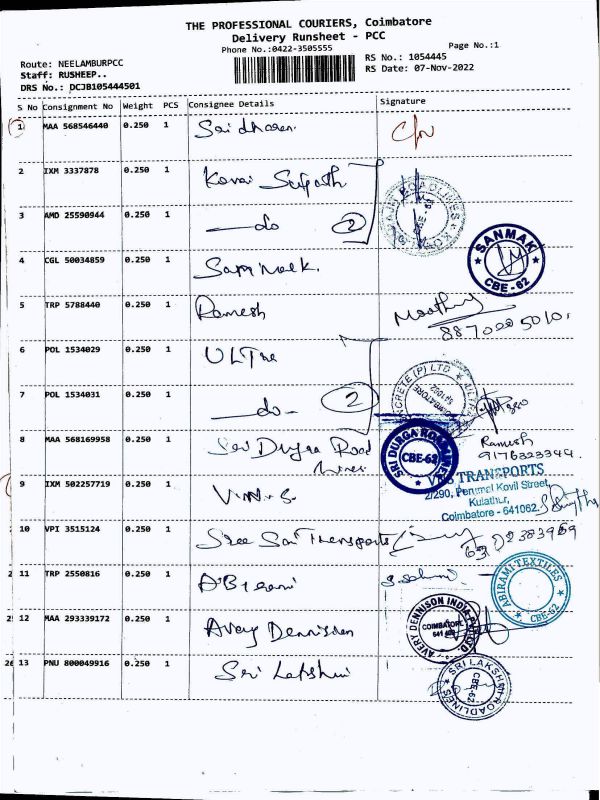 THE PROFESSIONAL COURIERS, Coimbatore
Delivery Runsheet - PCC
Phone No.:0422-3505555
Page No.:1
Route: NEELAMBURPCC
RS No.: 1054445
Staff: RUSHEEP..
RS Date: 07-Nov-2022
DRS No.: DCJB105444501
S No Consignment No Weight PCS Consignee Details Signature
1 MAA 568546440 0.250 1 Sai dharani
2 IXM 3337878 0.250 1 Kovai
3 AMD 25590944 0.250 1 —do 2
4 CGL 50034859 0.250 1
SANMAK
CBE-62
5 TRP 5788440 0.250 1 Ramesh
6 POL 1534029 0.250 1 ULTra
7 POL 1534031 0.250 1 —do— 2
8 MAA 568169958 0.250 1 Sri Durga Road
lines
SRI DURGA ROADLINES
CBE-62
Ramesh
9176323344
9 IXM 502257719 0.250 1 V.M.S.
TRANSPORTS
2/290, Perumal Kovil Street,
Kulathur,
Coimbatore - 641062.
10 VPI 3515124 0.250 1 Sree Sai Transports
11 TRP 2550816 0.250 1
ABIRAMI TEXTILES
CBE-62
12 MAA 293339172 0.250 1 Avery Dennison
AVERY DENNISON INDIA
COIMBATORE
13 PNU 800049916 0.250 1 Sri Lakshmi
SRI LAKSHMI ROADLINES
CBE-62